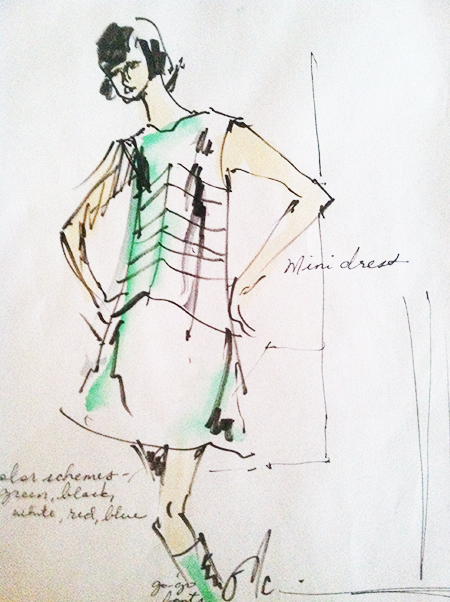 mini dress
olor schemes-
green, black,
white, red, blue
go-go
boots